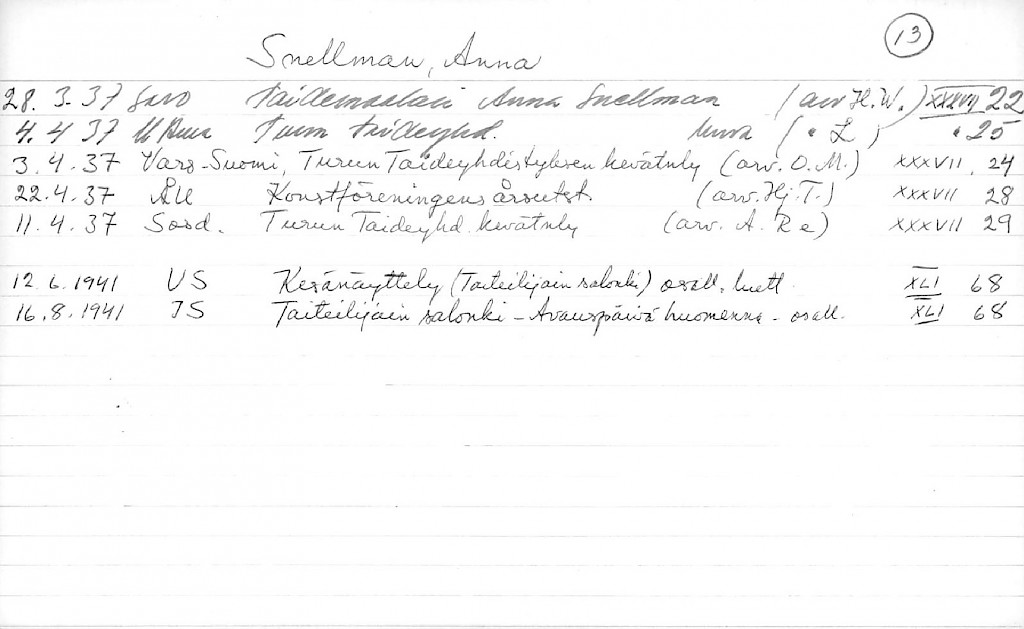 13
Snellman, Anna
28. 3. 37 Savo Taidemaalari Anna Snellman (arv H.W.) XXXVII 22
4. 4 37 U Aura Turun taideyhd. kuva ( " L ) " 25
3. 4. 37 Vars-Suomi, Turun Taideyhdistyksen kevätnly (arv. O.M.) XXXVII 24
22.4.37 ÅU Konstföreningens årsutst. (arv. Hj. T.) XXXVII 28
11. 4. 37 Sosd. Turun Taideyhd. kevätnly (arv. A. Re) XXXVII 29
12. 6. 1941 US Kesänäyttely (Taiteilijain salonki) osall. luett. XLI 68
16. 8. 1941 IS Taiteilijain salonki - Avauspäivä huomenna - osall. XLI 68